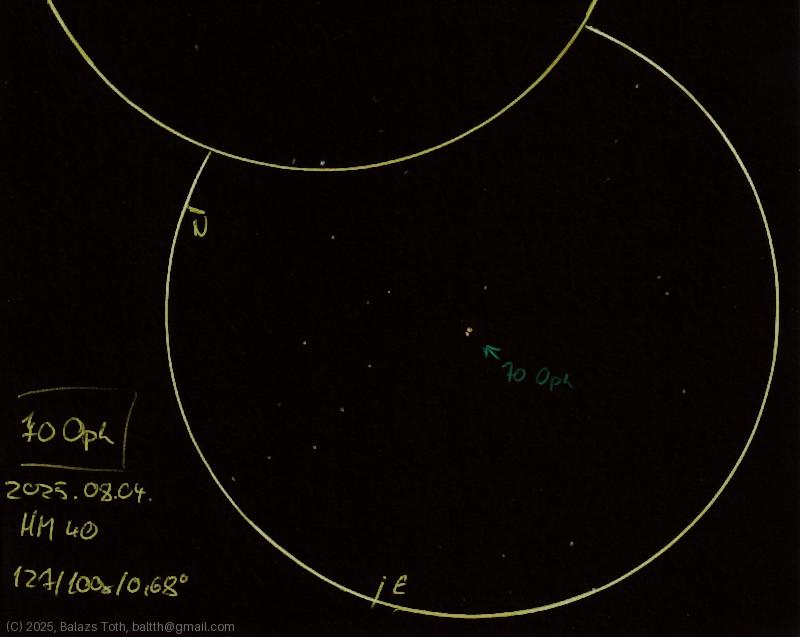 N
70 Oph
70 Oph
2025.08.04.
HM 40
127/100x/0,68°
E
(C) 2025, Balazs Toth, baltth@gmail.com